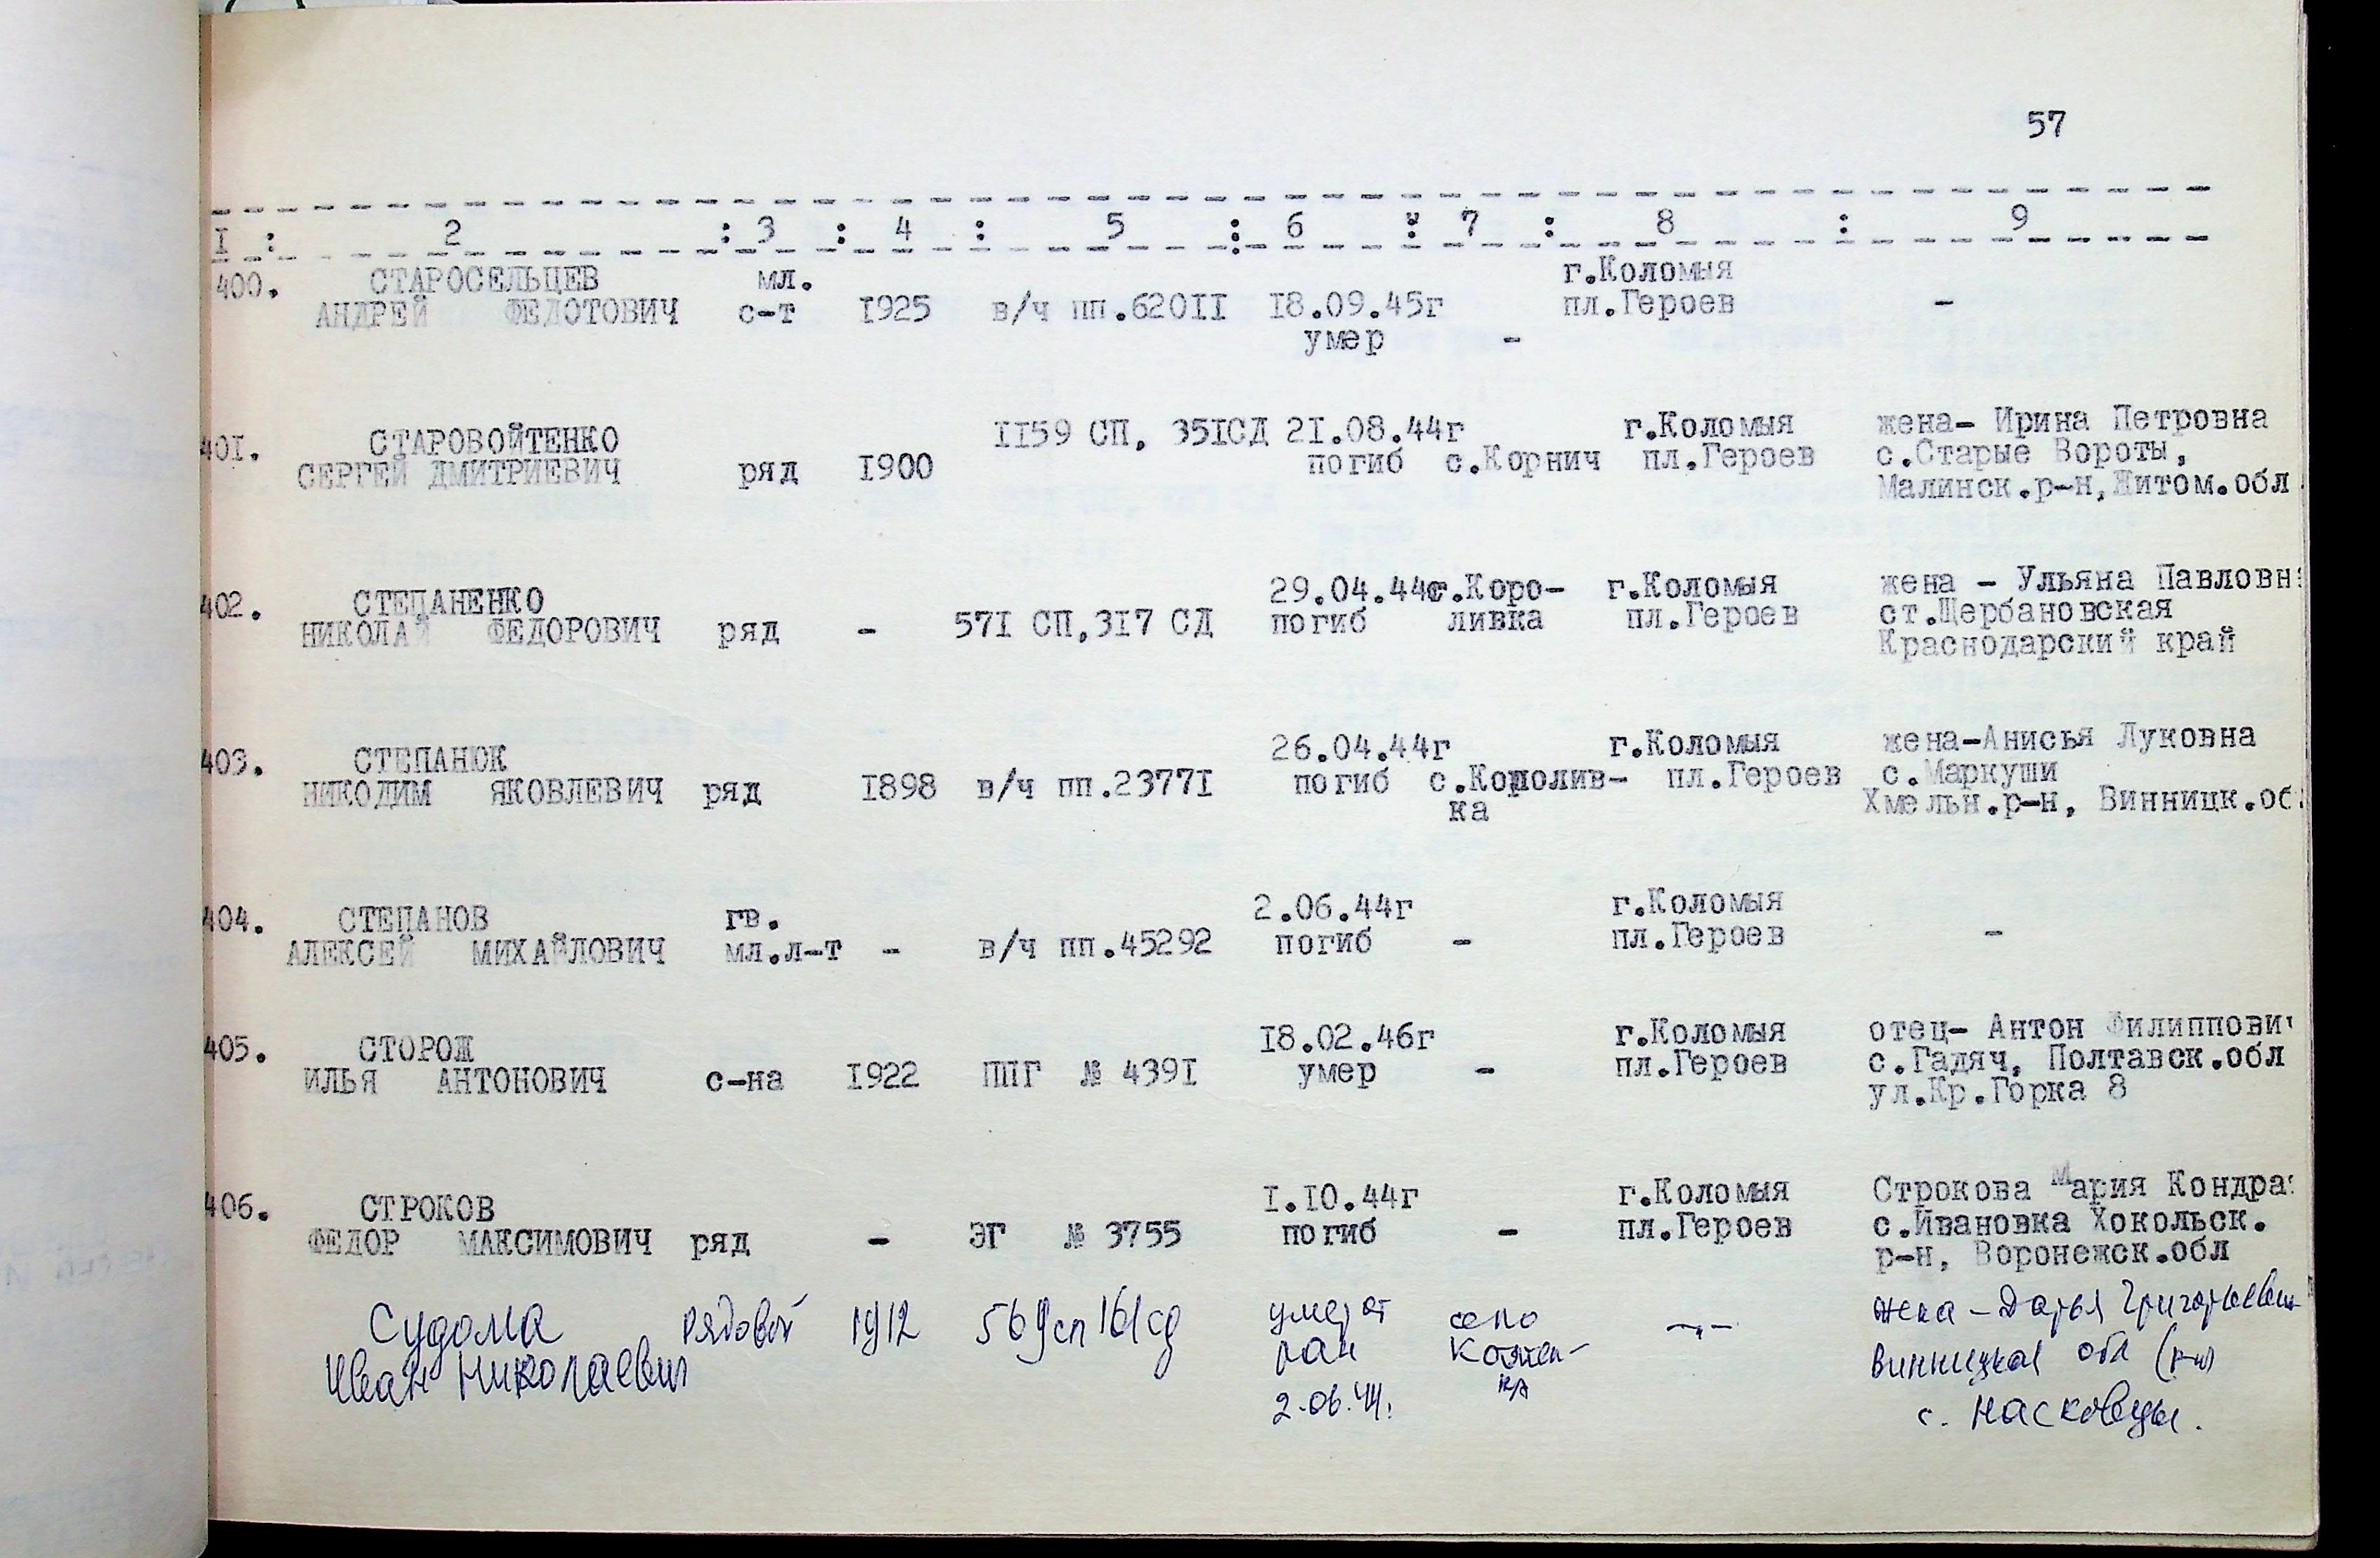 57
I : 2 : 3 : 4 : 5 : 6 : 7 : 8 : 9
400. СТАРОСЕЛЬЦЕВ мл. г.Коломыя
АНДРЕЙ ФЕДОТОВИЧ с-т I925 в/ч пп.620II I8.09.45г пл.Героев -
умер -
40I. СТАРОВОЙТЕНКО II59 СП, 35IСД 2I.08.44г г.Коломыя жена- Ирина Петровна
СЕРГЕЙ ДМИТРИЕВИЧ ряд I900 погиб с.Корнич пл.Героев с.Старые Вороты,
Малинск.р-н,Житом.обл.
402. СТЕПАНЕНКО 29.04.44г с.Коро- г.Коломыя жена - Ульяна Павловн
НИКОЛАЙ ФЕДОРОВИЧ ряд - 57I СП,3I7 СД погиб ливка пл.Героев ст.Щербановская
Краснодарский край
403. СТЕПАНЮК 26.04.44г г.Коломыя жена-Анисья Луковна
НИКОДИМ ЯКОВЛЕВИЧ ряд I898 в/ч пп.2377I погиб с.Королив- пл.Героев с.Маркуши
ка Хмельн.р-н, Винницк.об
404. СТЕПАНОВ гв. 2.06.44г г.Коломыя
АЛЕКСЕЙ МИХАЙЛОВИЧ мл.л-т - в/ч пп.45292 погиб - пл.Героев -
405. СТОРОЖ I8.02.46г г.Коломыя отец- Антон Филиппович
ИЛЬЯ АНТОНОВИЧ с-на I922 ППГ № 439I умер - пл.Героев с.Гадяч, Полтавск.обл
ул.Кр.Горка 8
406. СТРОКОВ I.I0.44г г.Коломыя Строкова Мария Кондра
ФЕДОР МАКСИМОВИЧ ряд - ЭГ № 3755 погиб - пл.Героев с.Ивановка Хокольск.
р-н, Воронежск.обл
Судома рядовой 1912 569сп 161сд умер от село -"- жена - Дарья Григорьевн
Иван Николаевич ран Винницкая обл (р-н)
2.06.44. с. Масковцы.